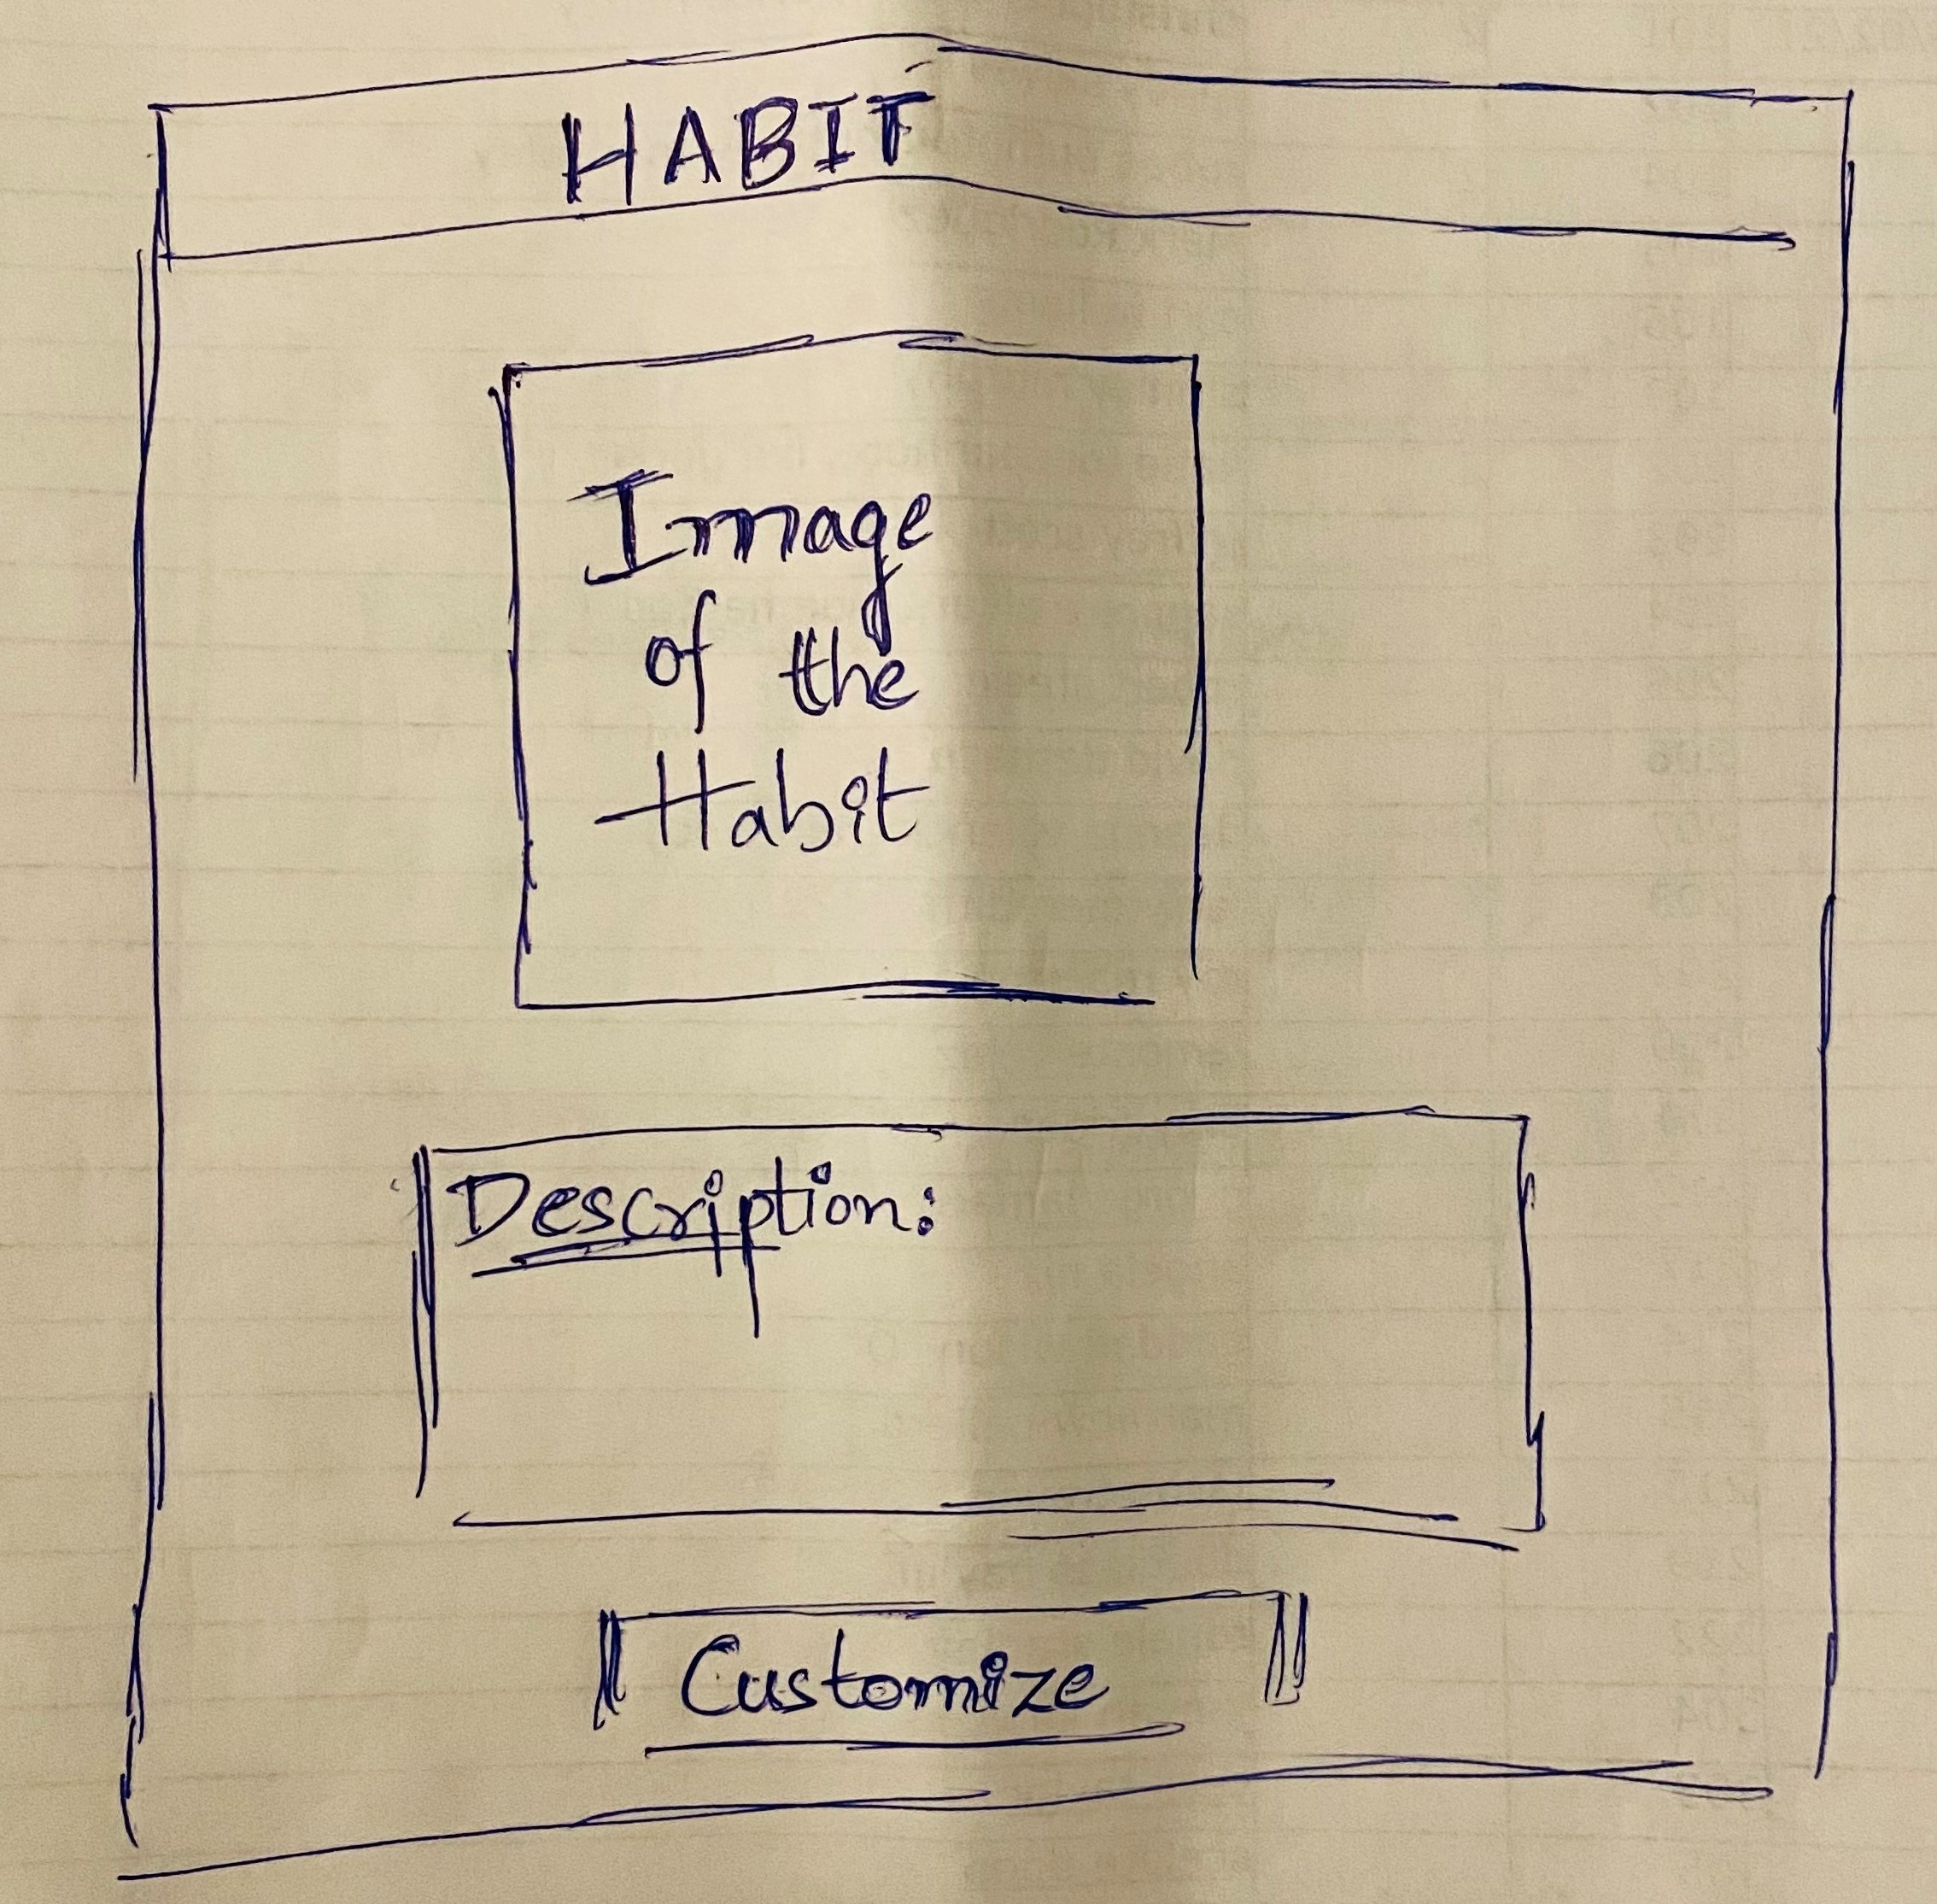 HABIT
Image
of the
Habit
Description:
Customize